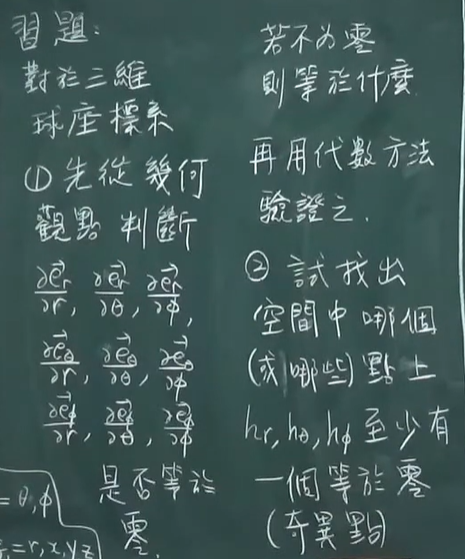 習題:
對於三維
球座標系
① 先從幾何
觀點 判斷
∂e⃗r/∂r, ∂e⃗r/∂θ, ∂e⃗r/∂φ,
∂e⃗θ/∂r, ∂e⃗θ/∂θ, ∂e⃗θ/∂φ
∂e⃗φ/∂r, ∂e⃗φ/∂θ, ∂e⃗φ/∂φ
是否等於
零.
若不為零
則等於什麼
再用代数方法
驗證之.
② 試找出
空間中哪個
(或哪些)點上
hr, hθ, hφ 至少有
一個等於零
(奇異點)
= θ, φ
=r, x, y, z